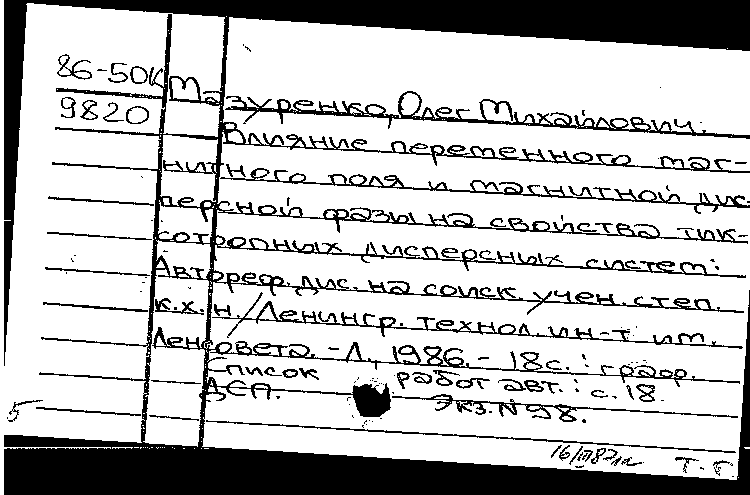 86-50К
9820
Мазуренко, Олег Михайлович.
Влияние переменного маг-
нитного поля и магнитной дис-
персной фазы на свойства тик-
сотропных дисперсных систем:
Автореф. дис. на соиск. учен. степ.
к.х.н./Ленингр. технол. ин-т им.
Ленсовета. -Л., 1986.- 18с. : граф.
Список работ авт.: с. 18.
ДСП. Экз. N98.
5
16/III 87
Т.-Г